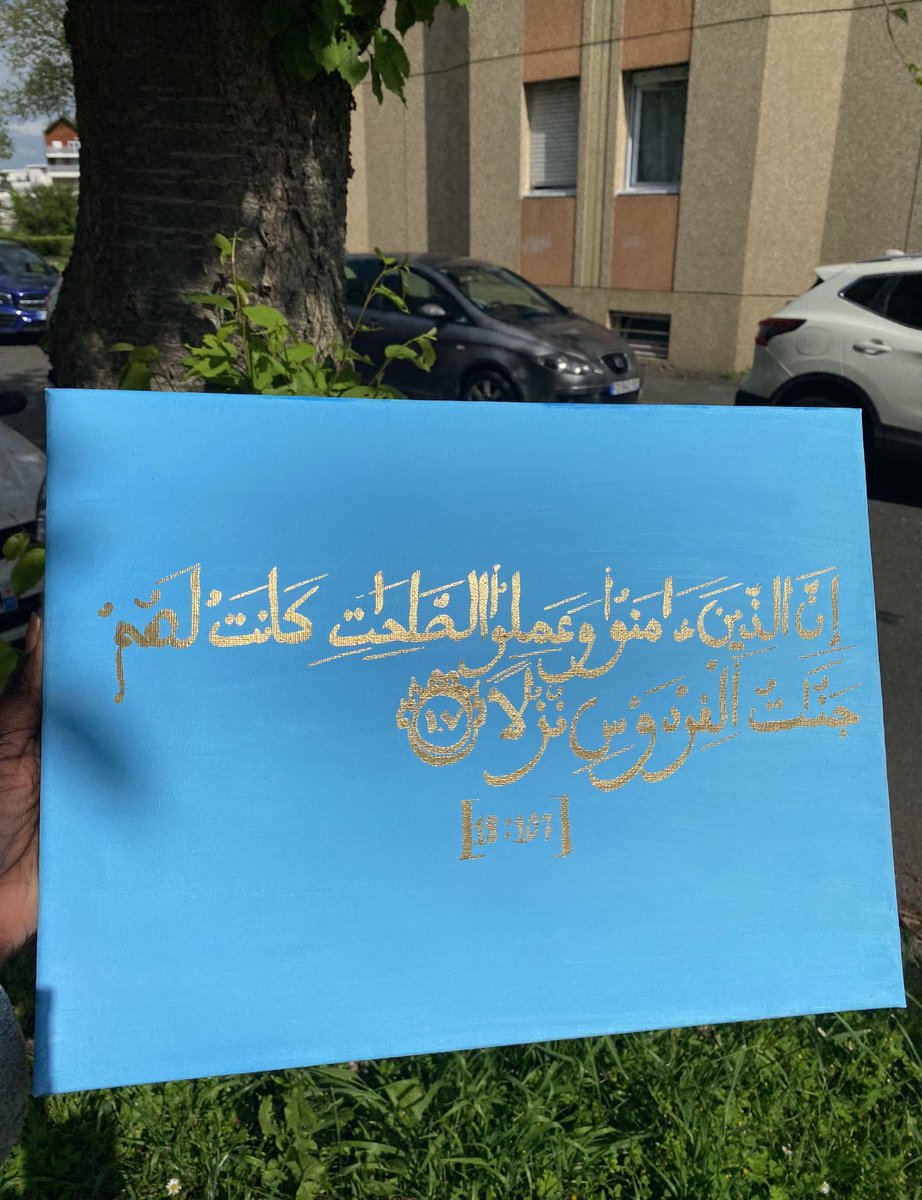 إِنَّ الَّذِينَ ءَامَنُوا وَعَمِلُوا الصَّلِحَٰتِ كَانَتْ لَهُمْ
جَنَّٰتُ ٱلْفِرْدَوْسِ نُزُلًا ١٠٧
[18:107]